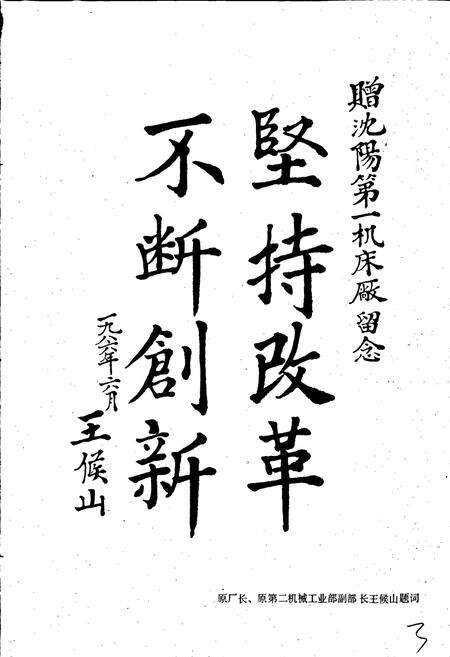 贈沈陽第一机床厰留念
堅持改革
不断創新
一九八六年六月
王候山
原厂长、原第二机械工业部副部长王候山题词
3